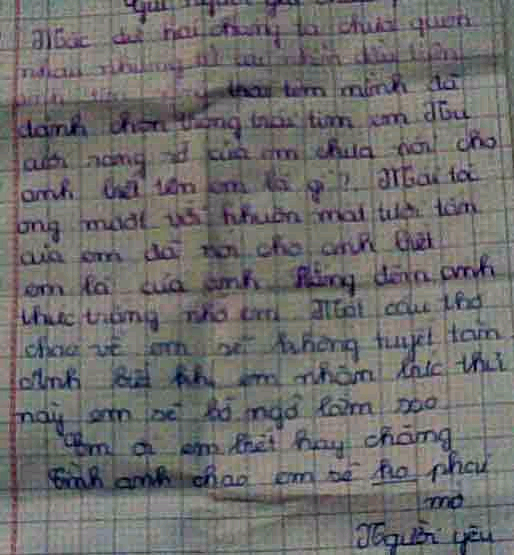 Mặc dù hai chúng ta chưa quen
nhau nhưng từ cái nhìn đầu tiên
trái tim mình đã
dành chọn trong trái tim em Nụ
cười rạng rỡ của em chưa nói cho
anh biết tên em là gì? Mái tóc
óng mượt với khuôn mặt tươi tắn
của em đã nói cho anh biết
em là của anh Hằng đêm anh
thức trắng nhớ em Một câu thơ
chao về em sẽ không tuyệt tầm
Anh biết khi em nhậm bức thư
này em sẽ bỡ ngỡ lắm sao
"Em ơi em biết hay chăng
tình anh chao em sẽ ho phai
mờ
Người yêu